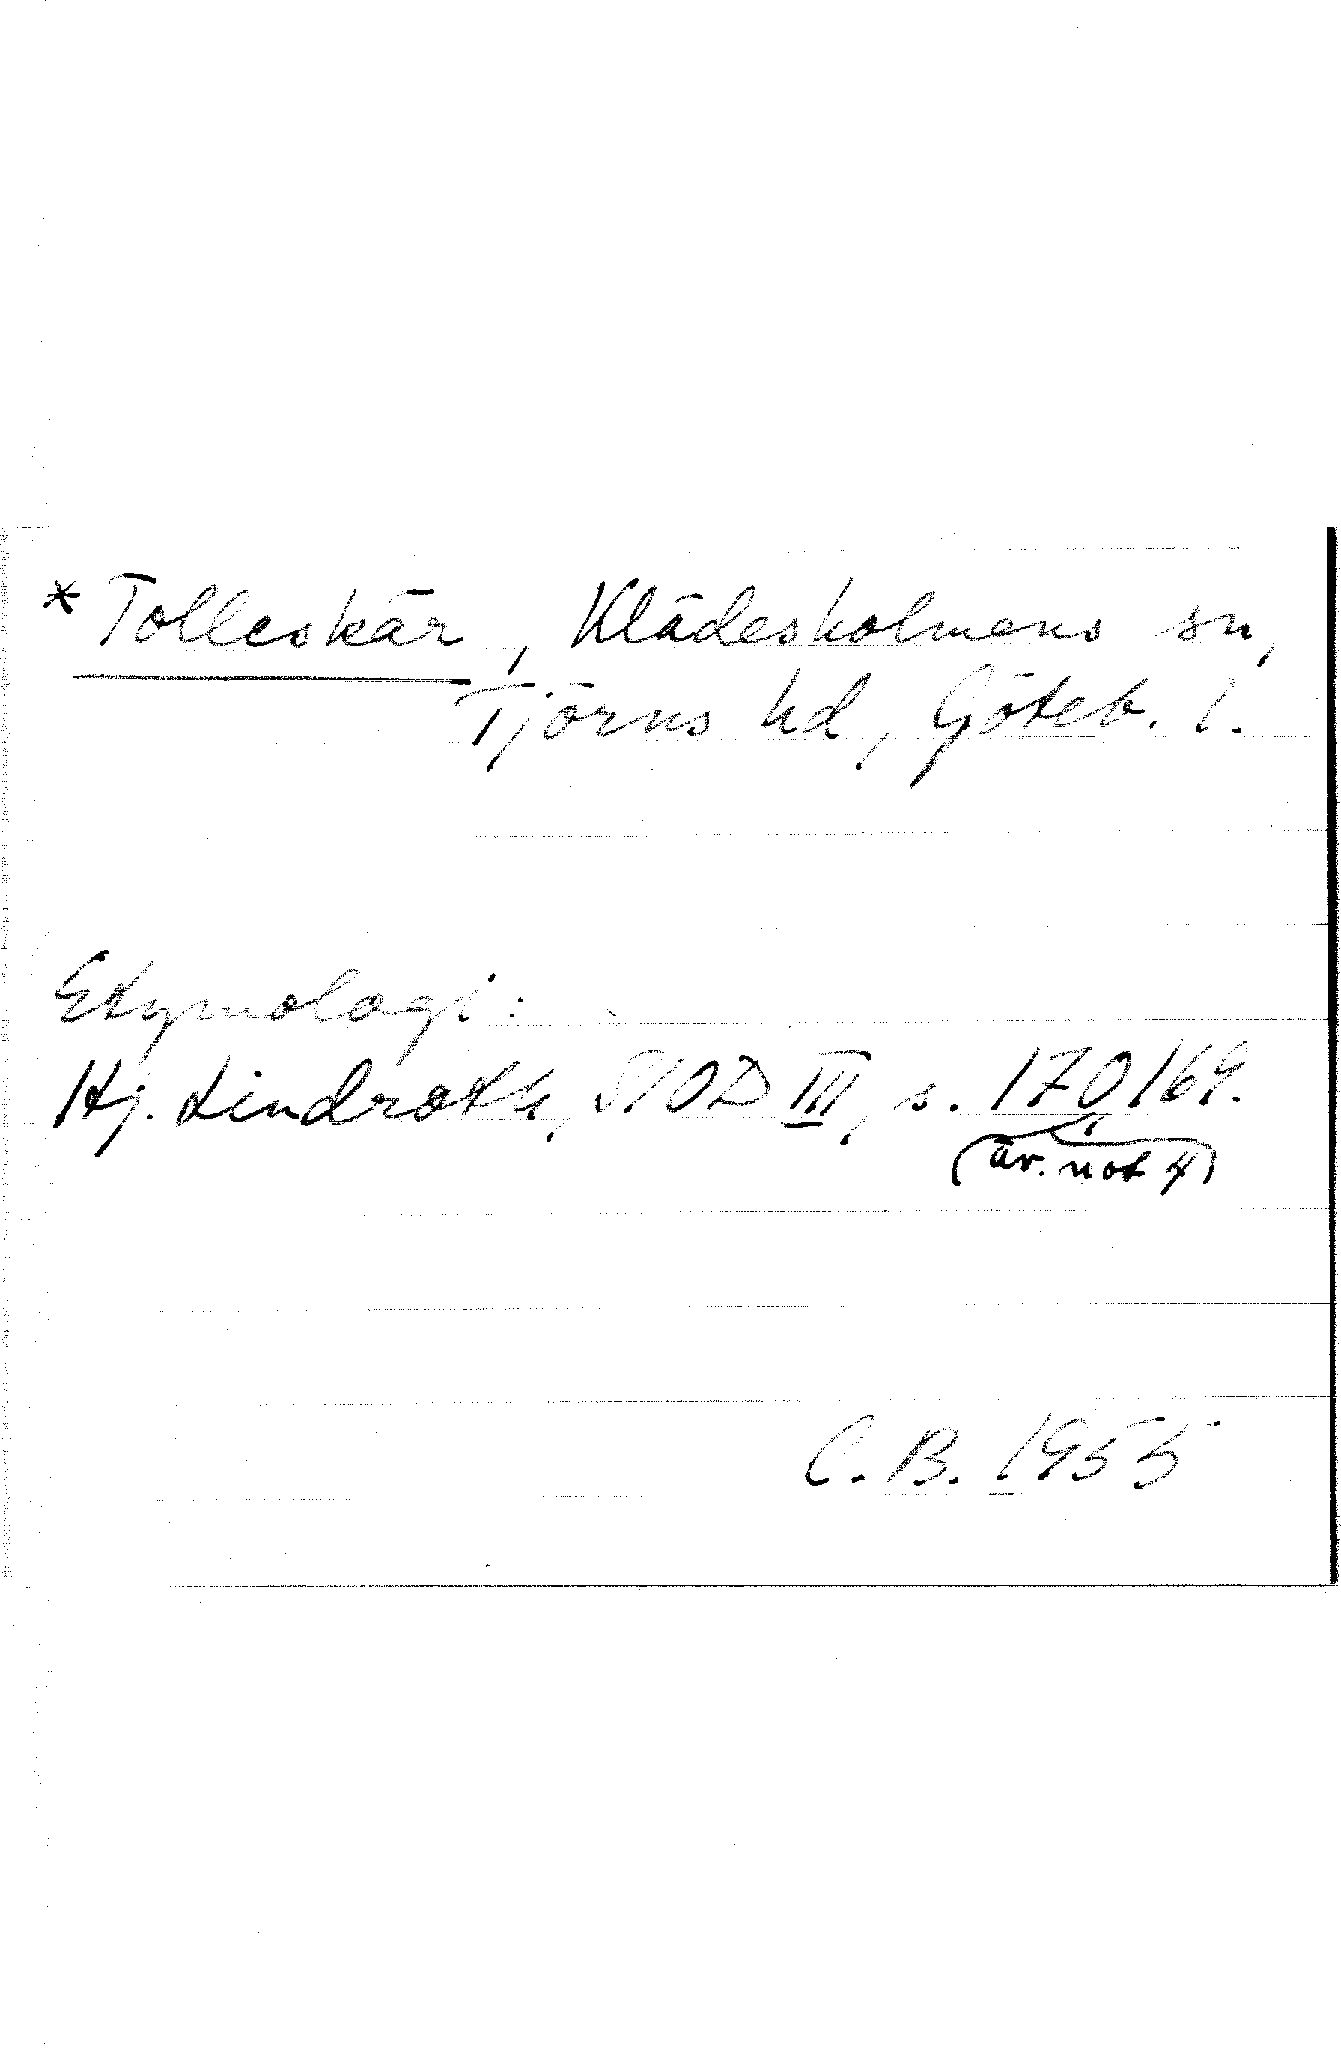 * Tolleskär, Klädesholmens sn,
Tjörns hd, Göteb. l.
Etymologi:
Hj. Lindroth, SIOD III, s. 170, 169.
(äv. not 4)
C. B. 1955